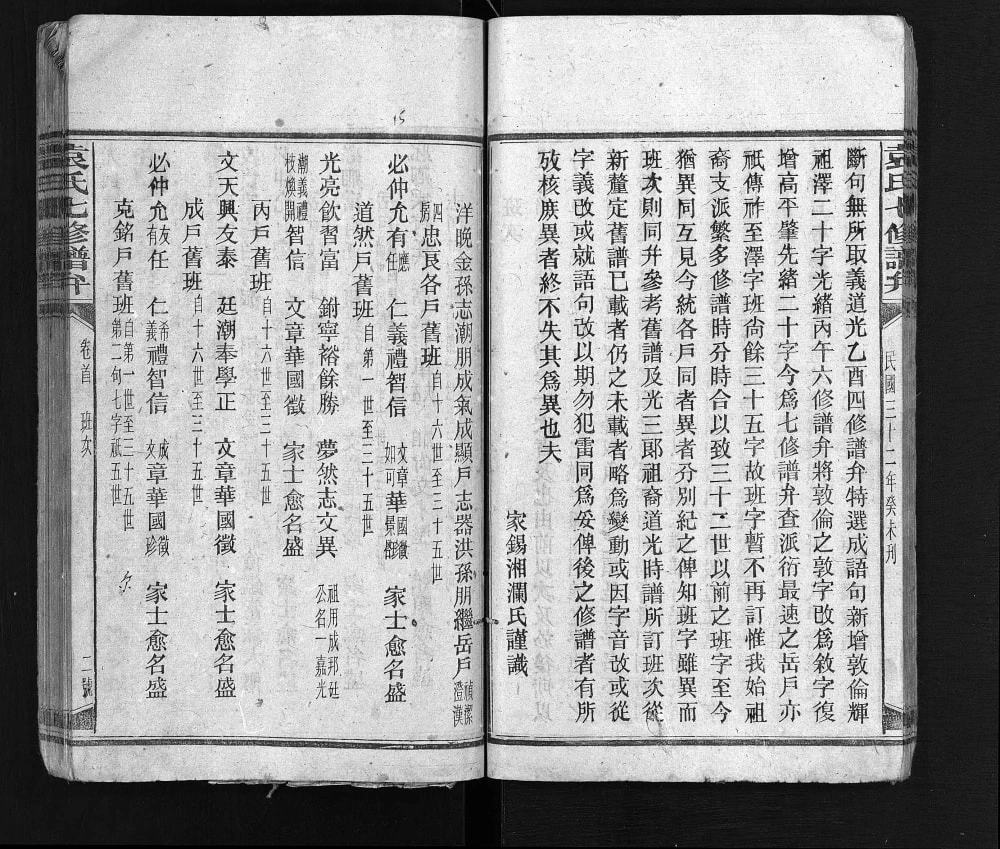 袁氏七修譜弁
民國三十二年癸未刋
斷句無所取義道光乙酉四修譜弁特選成語句新增敦倫輝
祖澤二十字光緒丙午六修譜弁將敦倫之敦字改爲敘字復
增高平肇先緒二十字今爲七修譜弁查派衍最速之岳戶亦
祇傳祚至澤字班尙餘三十五字故班字暫不再訂惟我始祖
裔支派繁多修譜時分時合以致三十二世以前之班字至今
猶異同互見今統各戶同者異者分別紀之俾知班字雖異而
班次則同幷參考舊譜及光三郞祖裔道光時譜所訂班次從
新釐定舊譜已載者仍之未載者略爲變動或因字音改或從
字義改或就語句改以期勿犯雷同爲妥俾後之修譜者有所
攷核庶異者終不失其爲異也夫
家錫湘瀾氏謹識
15
洋晚金孫志潮朋成氣成顯戶志器洪孫朋繼岳戶禎澄潔漢
四房忠良各戶舊班自十六世至三十五世
必仲允有應任 仁義禮智信 文章如可華國徵景 家士愈名盛
道然戶舊班自第一世至三十五世
光亮飮習富 鉜寧裕餘勝 夢然志文異 祖用成邦廷公名一嘉光
潮義禮枝煥開智信 文章華國徵 家士愈名盛
丙戶舊班自十六世至三十五世
文天興友泰 廷潮奉學正 文章華國徵 家士愈名盛
成戶舊班自十六世至三十五世
必仲允友有任 仁希義禮智信 成文章華國徵珍 家士愈名盛
克銘戶舊班自第一世至三十五世第二句七字祇五世
袁氏七修譜弁
卷首 班次
二號